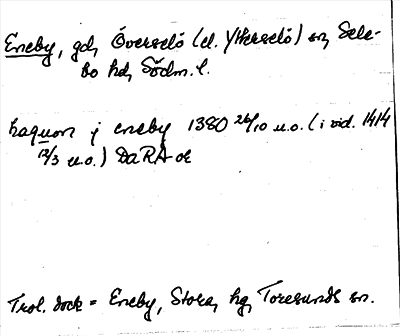 Eneby, gd, Överselö (el. Ytterselö) sn, Sele-
bo hd, Södm. l.
haquon j eneby 1380 26/10 u.o. (i vid. 1414
12/3 u.o.) DaRA or
Trol. dock = Eneby, Stora, hg, Toresunds sn.